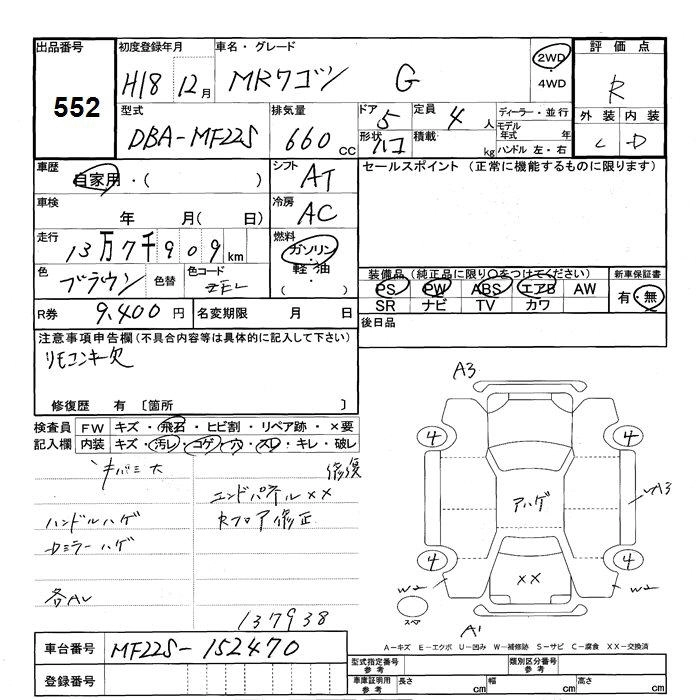 出品番号
552
初度登録年月
H18 12月
車名・グレード
MRワゴン G
2WD
・4WD
評価点
R
外装 内装
C D
型式
DBA-MF22S
排気量
660 cc
ドア 5
定員 4 人
形状 ハコ
積載 kg
ディーラー・並行
モデル年式 年
ハンドル 左・右
車歴
自家用・( )
シフト
AT
セールスポイント (正常に機能するものに限ります)
車検
年 月( 日)
冷房
AC
走行
13万7千909km
燃料
ガソリン
軽・油
( )
色
ブラウン
色替
色コード
ZEL
装備品(純正品に限り○をつけてください)
PS PW ABS エアB AW
SR ナビ TV カワ
新車保証書
有・無
R券 9,400円
名変期限 月 日
後日品
注意事項申告欄(不具合内容等は具体的に記入して下さい)
リモコンキー欠
修復歴 有 〔箇所 〕
検査員記入欄
FW キズ・飛石・ヒビ割・リペア跡・×要
内装 キズ・汚レ・コゲ・穴・スレ・キレ・破レ
キバミ大
修復
エンドパネル××
ハンドルハゲ
Rフロア修正
Dミラーハゲ
各AU
137938
A3
4
4
アハゲ
A3
4
4
××
W2
W2
スペア
A1
車台番号
MF22S-152470
登録番号
A-キズ E-エクボ U-凹み W-補修跡 S-サビ C-腐食 XX-交換済
型式指定番号
参考
類別区分番号
参考
車庫証明用
参考
長さ cm
幅 cm
高さ cm